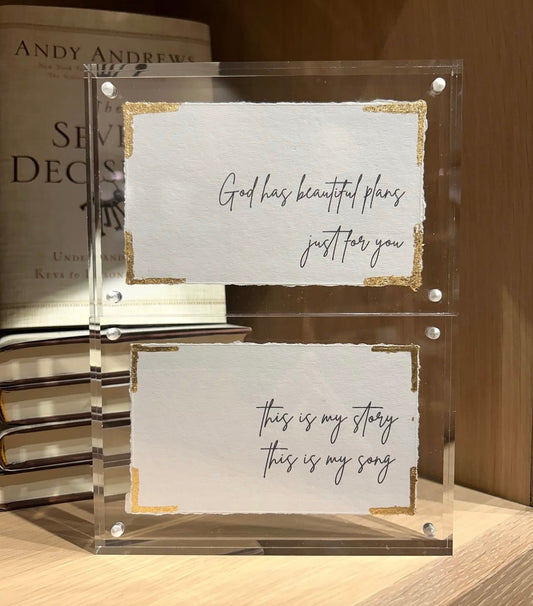 ANDY ANDREWS
The
SEVE
DECIS
UNDE
KEYS to
God has beautiful plans
just for you
this is my story
this is my song